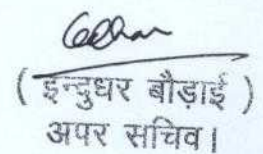 ( इन्दुधर बौड़ाई )
अपर सचिव।